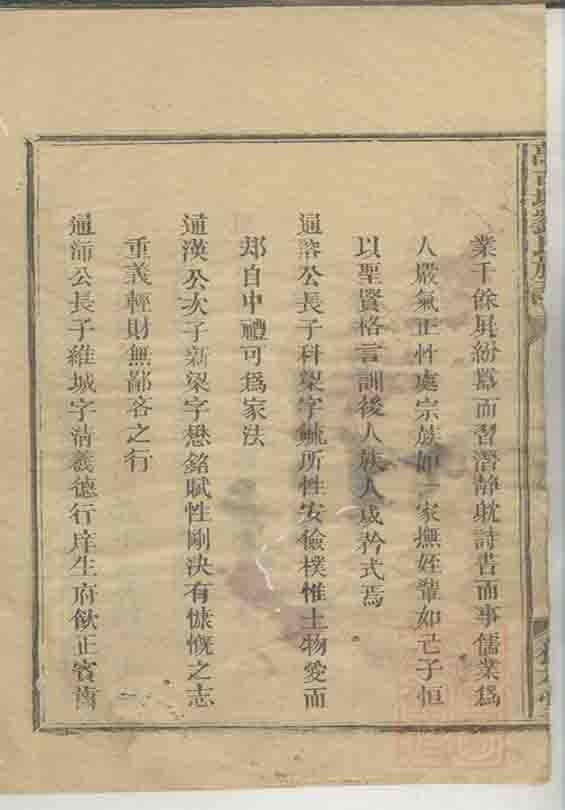 業千餘具紛囂而習潛靜耽詩書而事儒業爲
人嚴氣正性處宗族如一家撫姪輩如己子恒
以聖賢格言訓後人族人咸矜式焉
通溶公長子科梁字毓所性安儉樸惟土物愛而
却自中禮可爲家法
通漢公次子新梁字懋銘賦性剛決有慷慨之志
重義輕財無鄙吝之行
通沛公長子維城字清義德行庠生府飲正賓